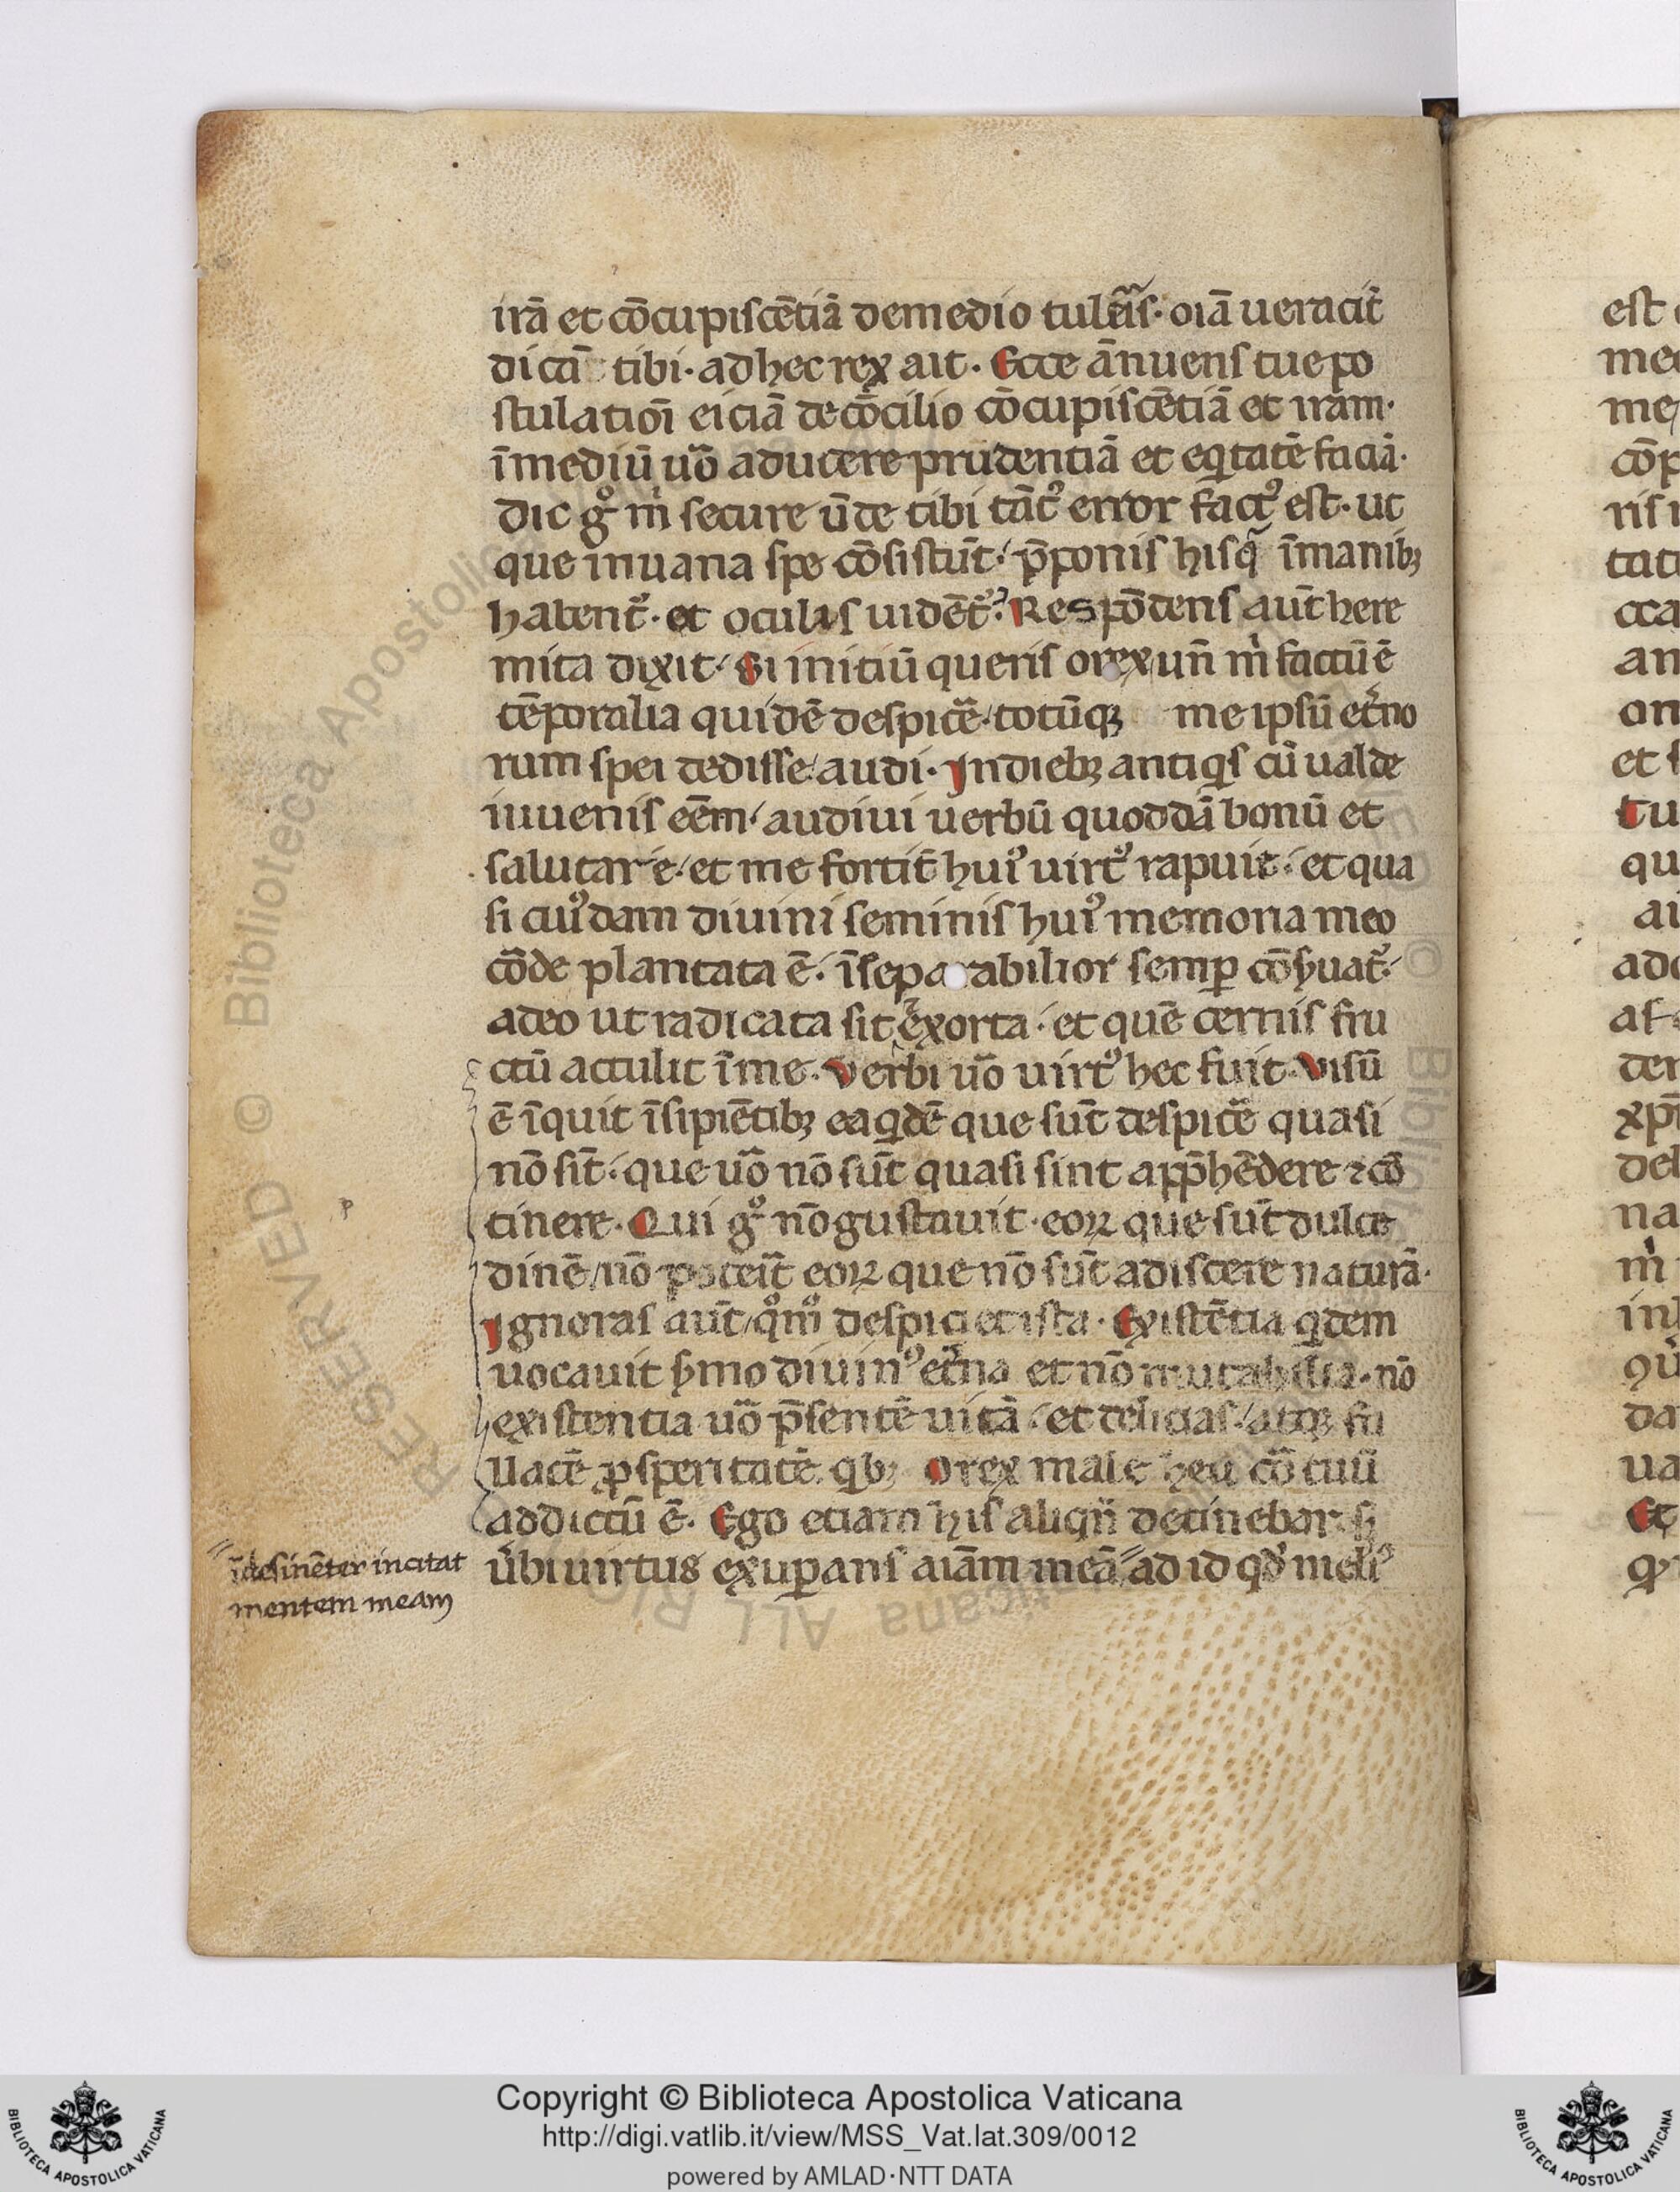 irā et cōcupiscētiā demedio tul̄a͞s· oīa ueracit̄
dicā tibi· adhec rex ait· Ecce ānuens tue po
stulatioī eiciā de cōcilio cōcupiscētiā et iram·
īmediū uō aducere prudentiā et eqitatē faciā·
Dic gº m̄ secure ūde tibi tātꝰ error factꝰ est· ut
que inuana spe cōsistūt· p̄ponis hisq̄ īmanibꝫ
habent᷑· et oculis uidēt᷑? Respōdens aūt here
mita dixit· Si initiū queris orex un̄ m̄ factū ē
tēporalia quidē despicē· totūqꝫ me ipsū et̄no
rum spei dedisse· audi· Indiebꝫ antiqis cū ualde
iuuenis eēm· audiui uerbū quoddā bonū et
salutare· et me fortit̄ huiꝰ uirtꝰ rapuit· et qua
si cuiꝰdam diuini seminis huiꝰ memoria meo
cōde plantata ē· īseparabilior semꝑ cōs̄uat᷑·
adeo ut radicata sit exorta· et quē cernis fru
ctū attulit īme· Verbi uō uirtꝰ hec fuit· Visū
ē īquit īsipiētibꝫ ea qdē que sūt despicē quasi
nō sīt· que uō nō sūt quasi sint app̄hēdere ⁊ cō
tinere· Qui gº nō gustauit· eoꝝ que sūt dulce
dinē nō poteīt eoꝝ que nō sūt adiscere naturā·
Ignoras aūt qºmº despiciet ista· Existētia qdem
uocauit s̄mo diuinꝰ et̄na et nō mutabilia· nō
existentia uō p̄sentē uitā· et delicias· atqꝫ fa
llacē ꝓsperitatē qbꝫ orex male heu cō tuū
addictū ē· Ego etiam his aliqn̄ detinebar· sꝫ
ūbi uirtus exuꝑans aīam meā ad id qď meliꝰ
īdesinēter incitat
mentem meam
p
est
me
me
cōp
ris
tat
cca
an
on
et s
tu
qu
au
add
as
der
xp̄
del
na
m̄
in
da
ua
Et
Copyright © Biblioteca Apostolica Vaticana
http://digi.vatlib.it/view/MSS_Vat.lat.309/0012
powered by AMLAD·NTT DATA
BIBLIOTECA APOSTOLICA VATICANA
BIBLIOTECA APOSTOLICA VATICANA